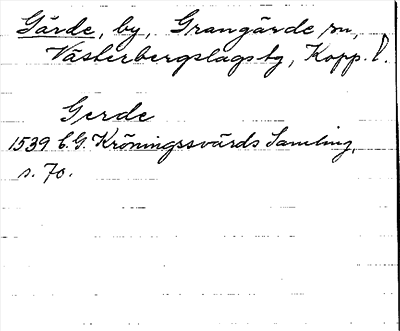 Gärde, by, Grangärde sn,
Västerbergslags tg, Kopp. l.
Gerde
1539 C. G. Kröningssvärds Samling,
s. 70.